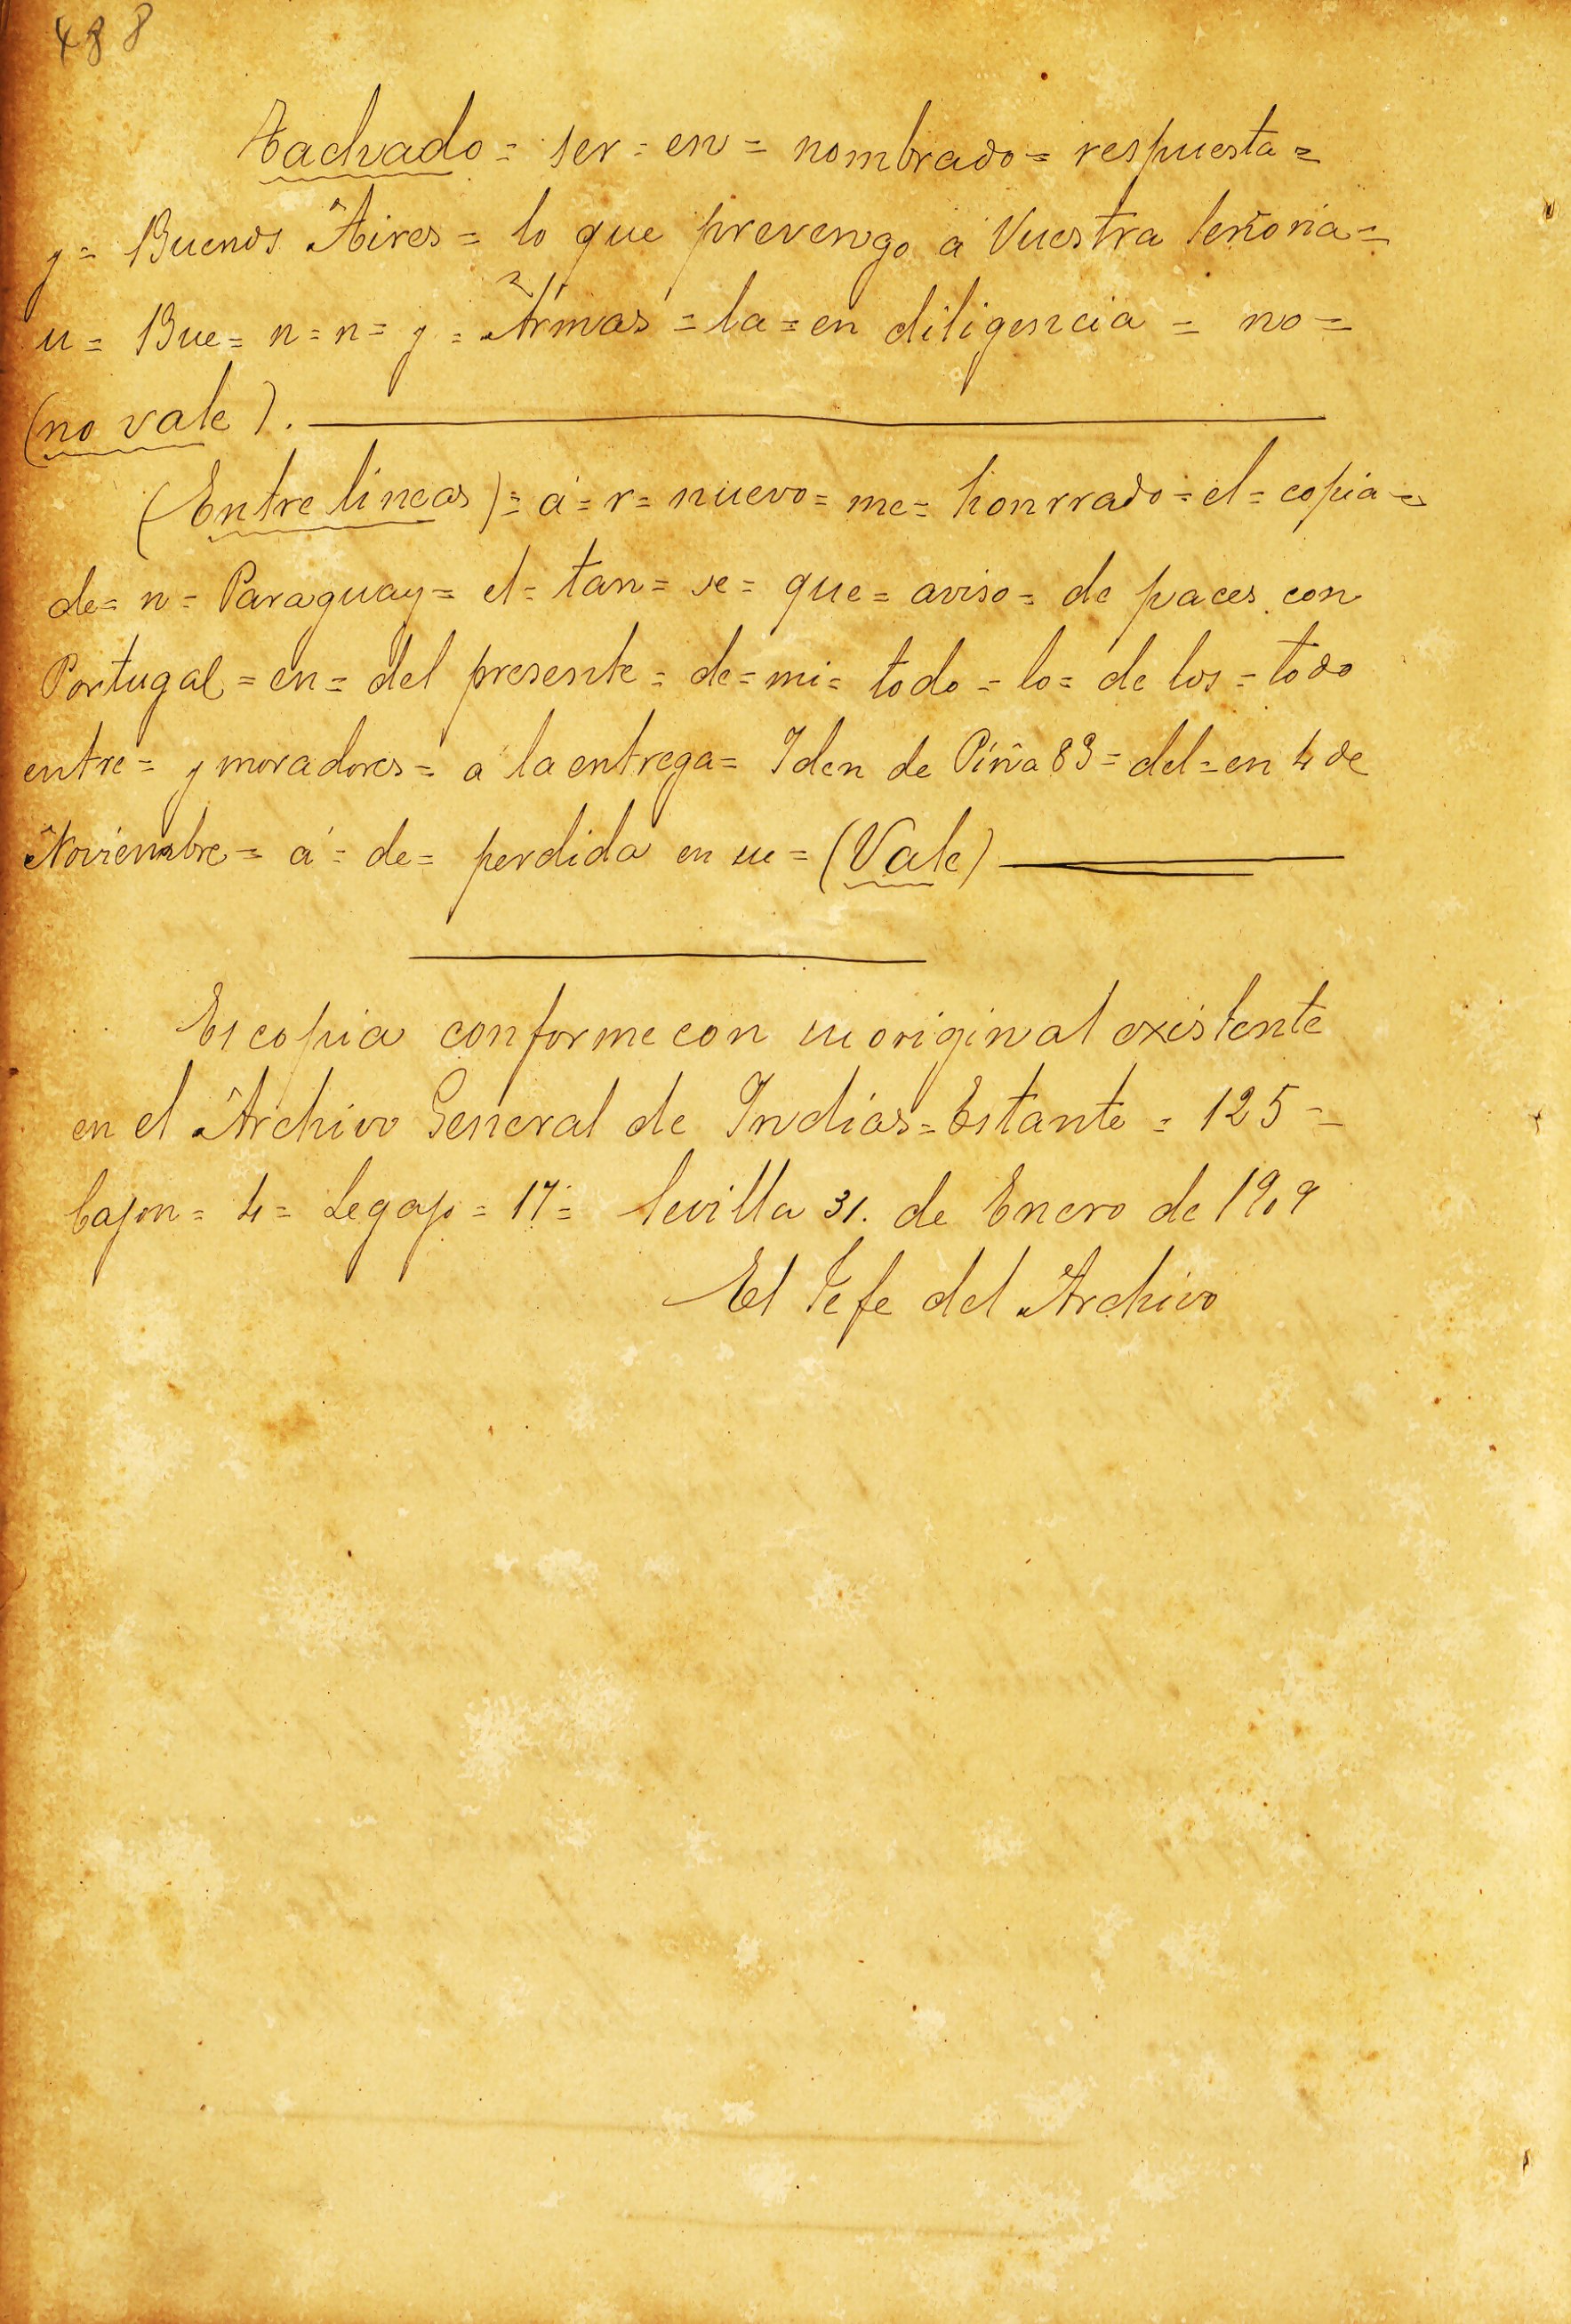 488
Tachado = ser = en = nombrado = respuesta =
y = Buenos Aires = lo que prevengo a Vuestra Señoria =
u = Bue = n = n = y = Armas = la = en diligencia = no =
(no vale).
(Entre lineas) = á = r = nuevo = me = honrrado = el = copia =
de = n = Paraguay = el = tan = se = que = aviso = de paces con
Portugal = en = del presente = de = mi = todo = lo = de los = todo
entre = y moradores = a la entrega = Iden de Piña 89 = del = en 4 de
Noviembre = á = de = perdida en su = (Vale)
Es copia conforme con su original existente
en el Archivo General de Indias = Estante = 125 =
Cajon = 4 = Legajo = 17 = Sevilla 31. de Enero de 1909
El Jefe del Archivo